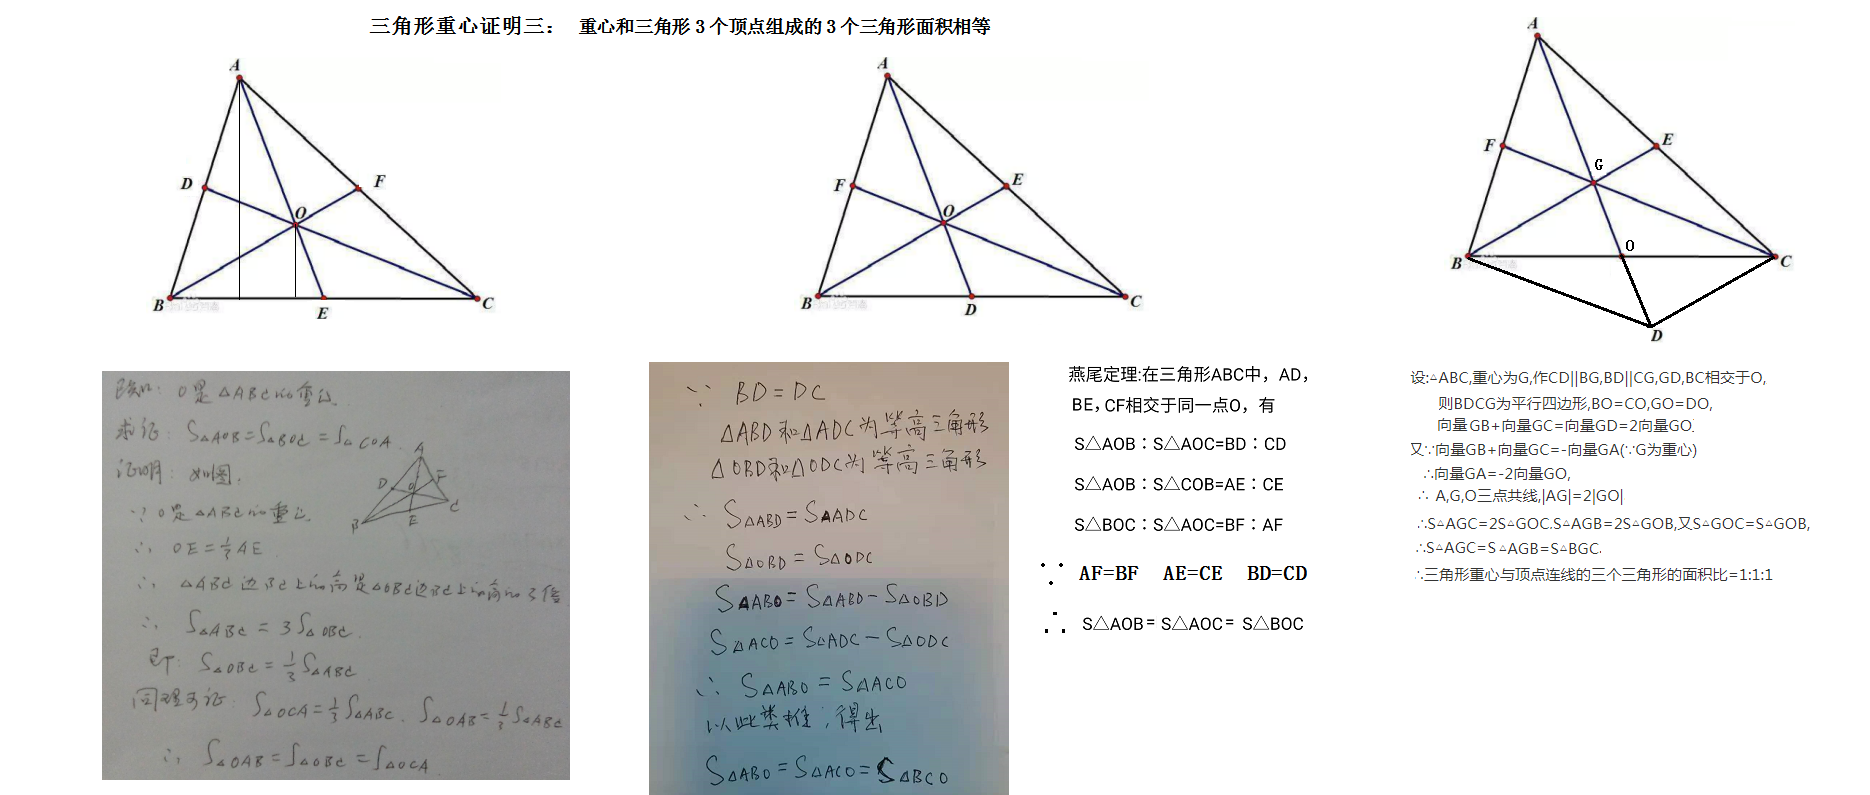 三角形重心证明三: 重心和三角形3个顶点组成的3个三角形面积相等
A
D
F
O
B
E
C
A
F
E
O
B
D
C
A
F
E
G
B
O
C
D
已知: O是△ABC的重心
求证: S△AOB=S△BOC=S△COA
证明: 如图,
A
D
O
F
B
E
C
∵ O是△ABC的重心
∴ OE=⅓AE
∴ △ABC边BC上的高是△OBC边BC上的高的3倍
∴ S△ABC=3S△OBC.
即: S△OBC=⅓S△ABC
同理可证: S△OCA=⅓S△ABC. S△OAB=⅓S△ABC
∴ S△OAB=S△OBC=S△OCA
∵ BD=DC
△ABD和△ADC为等高三角形
△OBD和△ODC为等高三角形
∴ S△ABD=S△ADC
S△OBD=S△ODC
S△ABO=S△ABD-S△OBD
S△ACO=S△ADC-S△ODC
∴ S△ABO=S△ACO
以此类推,得出
S△ABO=S△ACO=S△BCO
燕尾定理:在三角形ABC中，AD，
BE，CF相交于同一点O，有
S△AOB：S△AOC=BD：CD
S△AOB：S△COB=AE：CE
S△BOC：S△AOC=BF：AF
∵ AF=BF AE=CE BD=CD
∴ S△AOB=S△AOC=S△BOC
设:△ABC,重心为G,作CD||BG,BD||CG,GD,BC相交于O,
则BDCG为平行四边形,BO=CO,GO=DO,
向量GB+向量GC=向量GD=2向量GO.
又∵向量GB+向量GC=-向量GA(∵G为重心)
∴向量GA=-2向量GO,
∴ A,G,O三点共线,|AG|=2|GO|
∴S△AGC=2S△GOC.S△AGB=2S△GOB,又S△GOC=S△GOB,
∴S△AGC=S△AGB=S△BGC.
∴三角形重心与顶点连线的三个三角形的面积比=1:1:1